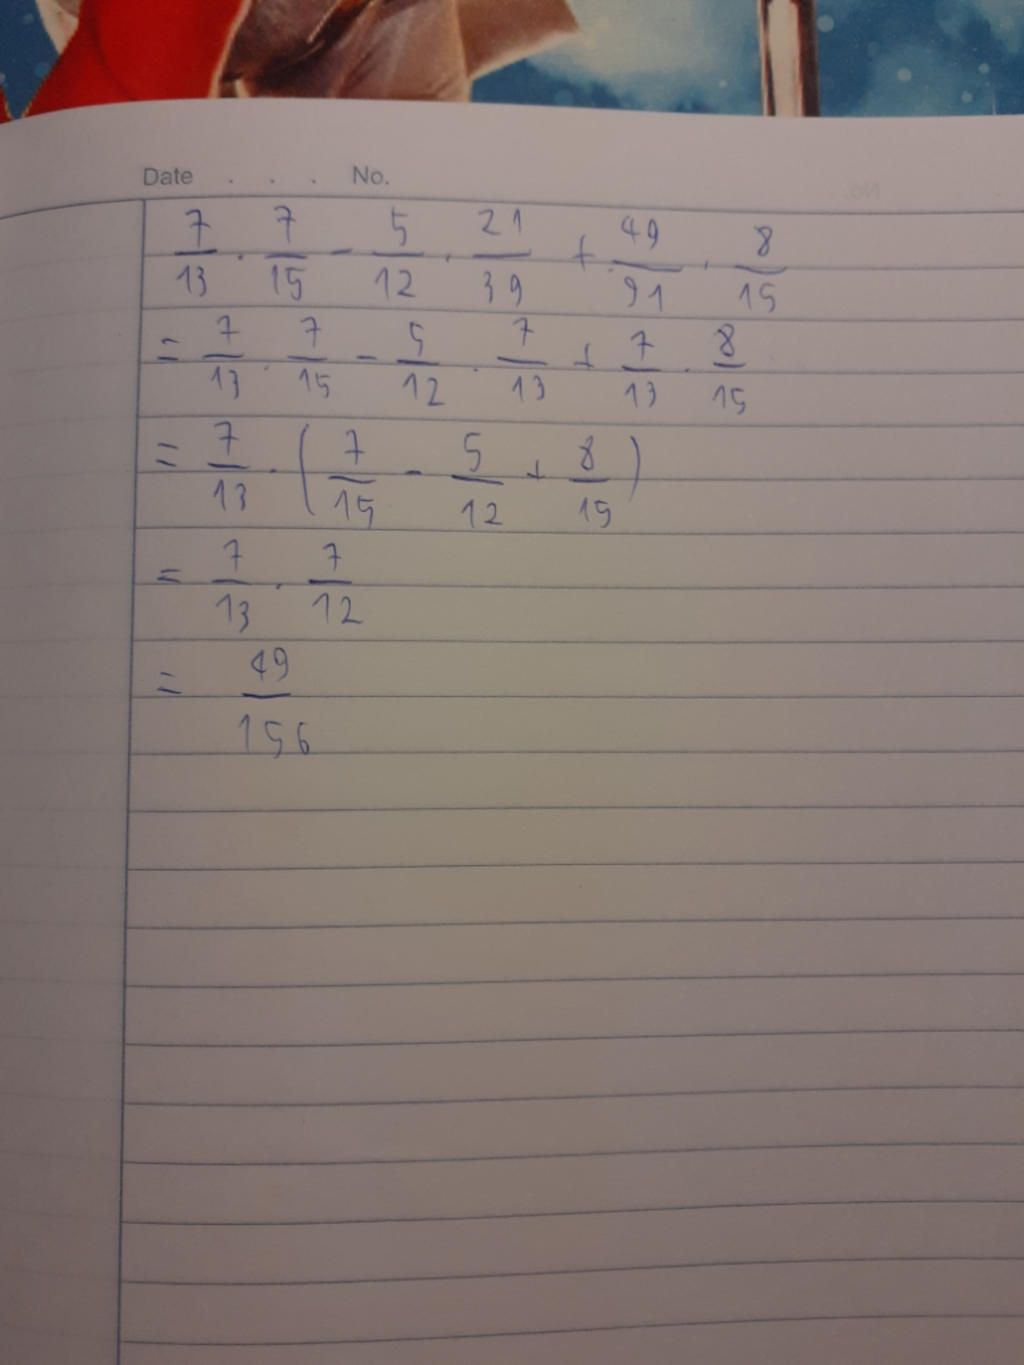 Date . . . No.
7/13 . 7/15 - 5/12 . 21/39 + 49/91 . 8/15
= 7/13 . 7/15 - 5/12 . 7/13 + 7/13 . 8/15
= 7/13 . (7/15 - 5/12 + 8/15)
= 7/13 . 7/12
= 49/156